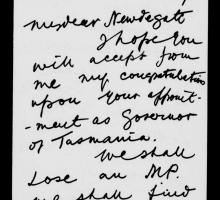 My dear Newdegate
I hope you
will accept from
me my congratulations
upon your appoint-
-ment as Governor
of Tasmania.
We shall
lose an M.P.
we shall find